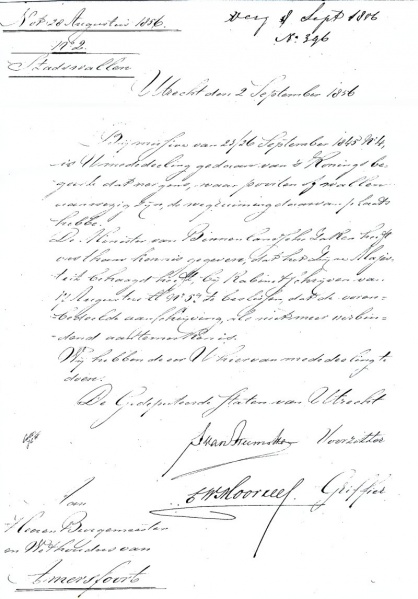 Not 28 Augustus 1856.
No 2
Stadswallen
Sept 1856
No 396
Utrecht den 2 September 1856
Bij missive van 25/26 September 1845 No 4,
is U mededeeling gedaan van 's Konings be-
geerte dat nergens, waar poorten of wallen
aanwezig zijn, de wegruiming daarvan plaats
hebbe.
De Minister van Binnenlandsche Zaken heeft
ons thans kennis gegeven, dat het Zijne Majes-
teit behaagd heeft, bij Kabinetschrijven van
Augustus ll No 52 te beslissen dat de voren-
bedoelde aanschrijving, als niet meer verbin-
dend aantemerken is.
Wij hebben de eer U hiervan mededeeling te
doen.
De Gedeputeerde Staten van Utrecht
Voorzitter
Griffier
Aan
Heeren Burgemeester
en Wethouders van
Amersfoort